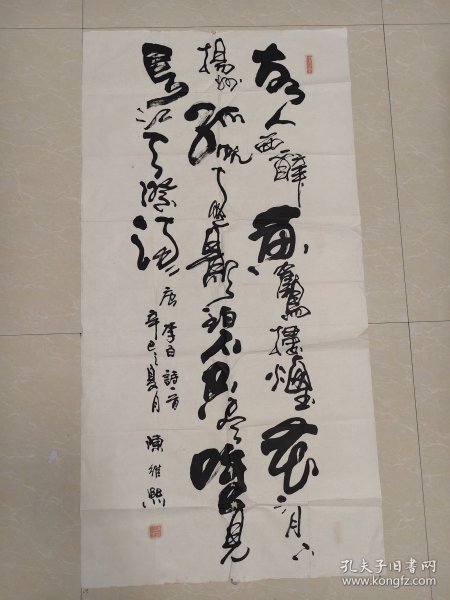 故人西辭黃鶴樓煙花三月下
揚州孤帆遠影碧空盡唯見
長江天際流
唐李白詩一首
辛巳之夏月 陳維熙
孔夫子旧书网
www.kongfz.com